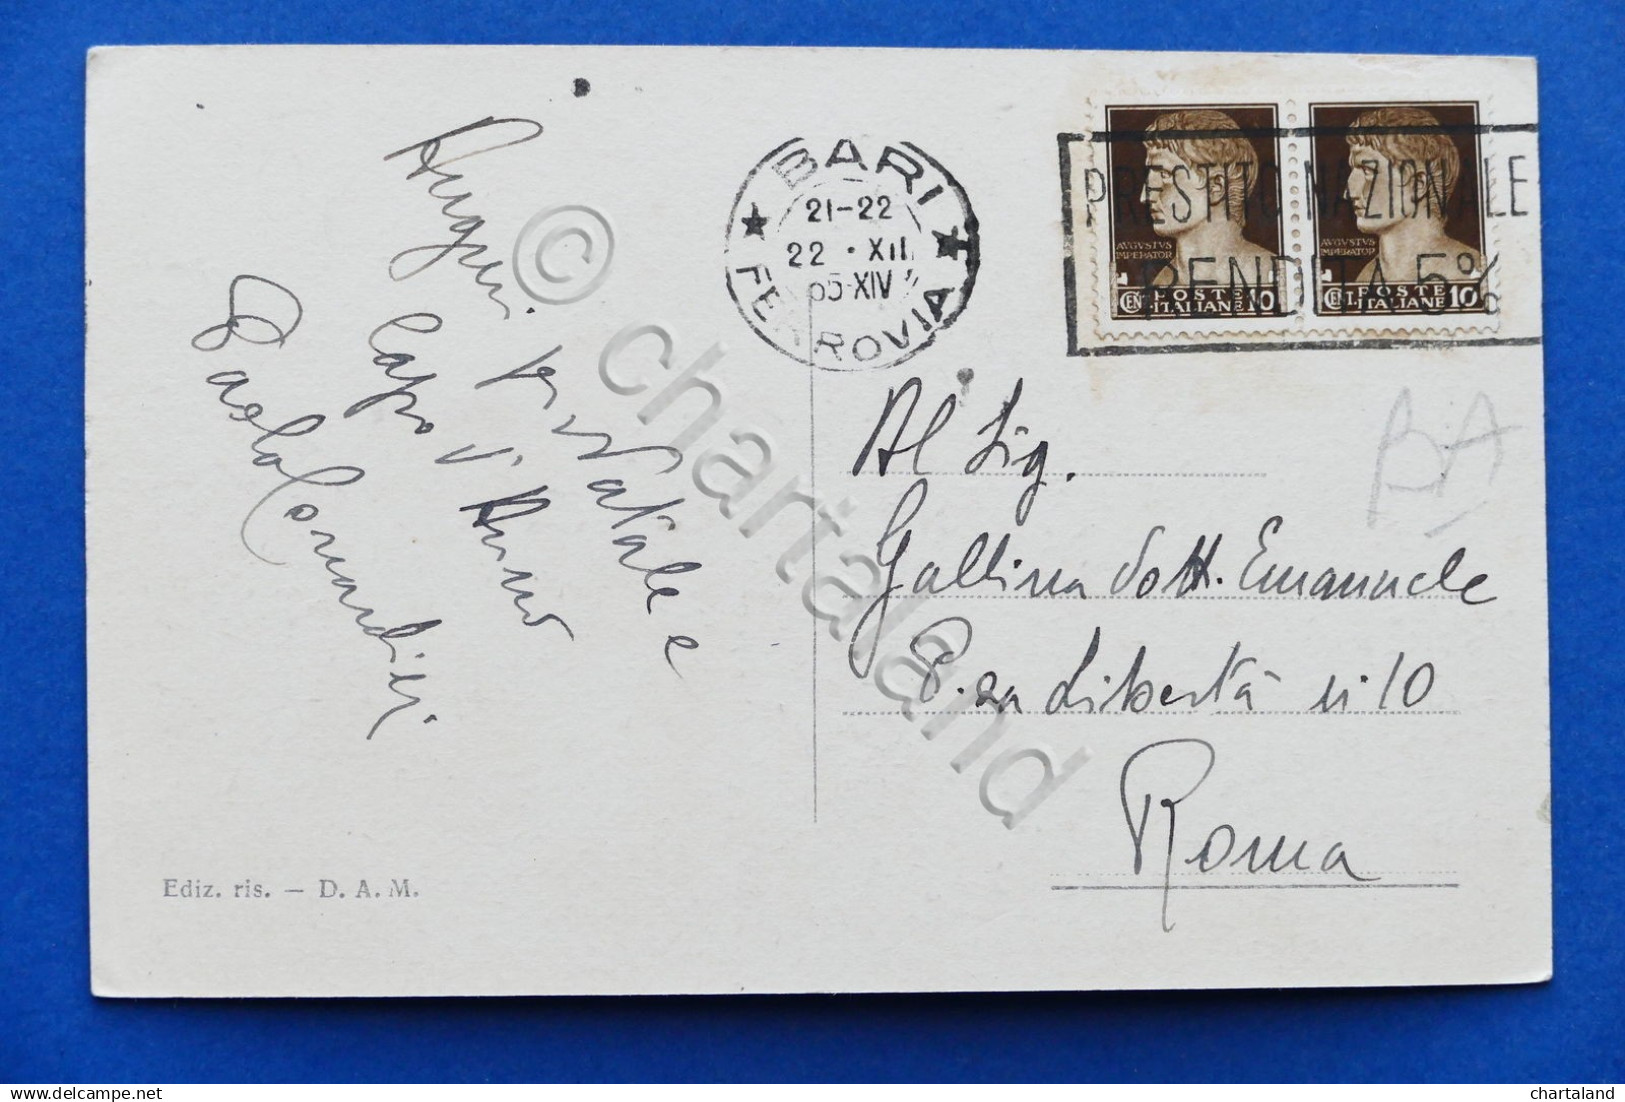 Auguri per Natale e
Capo d'Anno
BARI
FERROVIA
21-22
22 · XII
35-XIV
PRESTITO NAZIONALE
RENDITA 5%
AVGVSTVS
IMPERATOR
CENT. POSTE
ITALIANE 10
AVGVSTVS
IMPERATOR
CENT. POSTE
ITALIANE 10
BA
Al Sig.
Gallina dott. Emanuele
P.za Libertà n. 10
Roma
Ediz. ris. — D. A. M.
© chartaland
chartaland